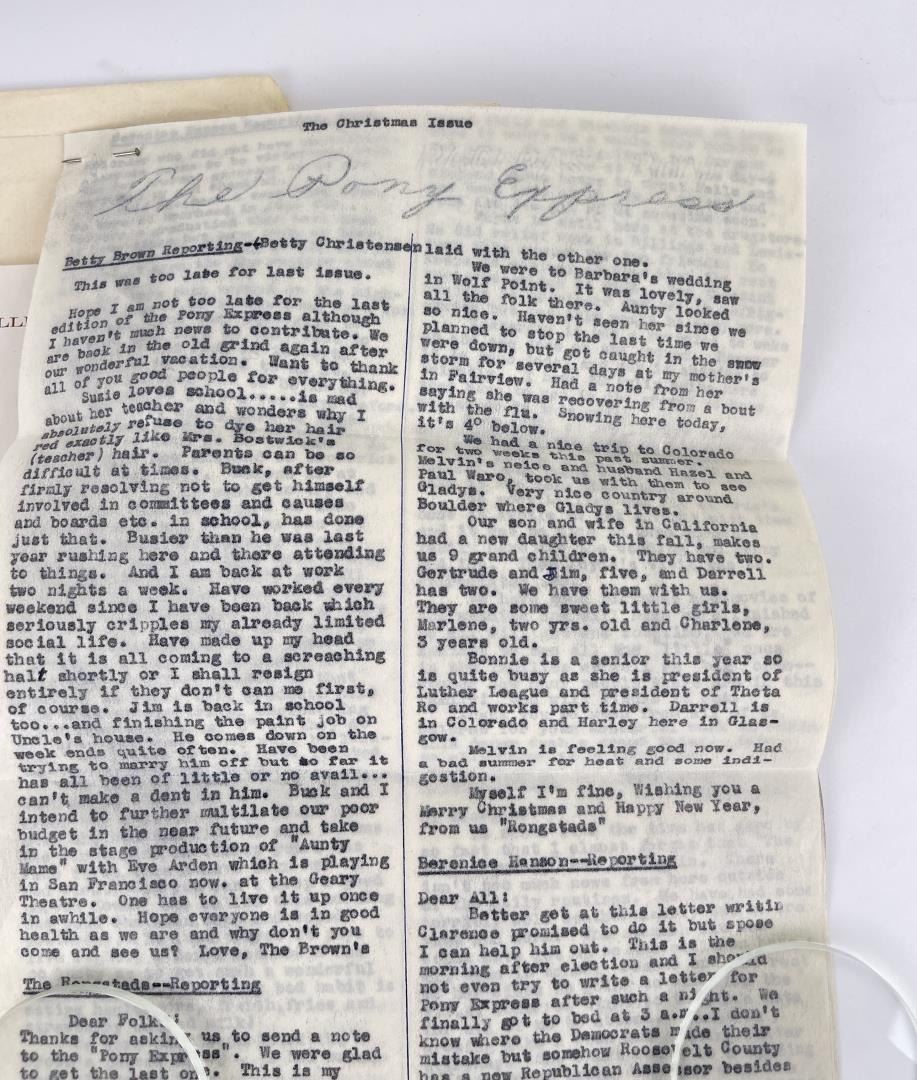 The Christmas Issue
The Pony Express
Betty Brown Reporting-(Betty Christensen
This was too late for last issue.
Hope I am not too late for the last
edition of the Pony Express although
I haven't much news to contribute. We
are back in the old grind again after
our wonderful vacation. Want to thank
all of you good people for everything.
Susie loves school.....is mad
about her teacher and wonders why I
absolutely refuse to dye her hair
red exactly like Mrs. Bostwick's
(teacher) hair. Parents can be so
difficult at times. Buck, after
firmly resolving not to get himself
involved in committees and causes
and boards etc. in school, has done
just that. Busier than he was last
year rushing here and there attending
to things. And I am back at work
two nights a week. Have worked every
weekend since I have been back which
seriously cripples my already limited
social life. Have made up my head
that it is all coming to a screaching
halt shortly or I shall resign
entirely if they don't can me first,
of course. Jim is back in school
too...and finishing the paint job on
Uncle's house. He comes down on the
week ends quite often. Have been
trying to marry him off but so far it
has all been of little or no avail...
can't make a dent in him. Buck and I
intend to further multilate our poor
budget in the near future and take
in the stage production of "Aunty
Mame" with Eve Arden which is playing
in San Francisco now. at the Geary
Theatre. One has to live it up once
in awhile. Hope everyone is in good
health as we are and why don't you
come and see us? Love, The Brown's
The Rongstads--Reporting
Dear Folk
Thanks for asking us to send a note
to the "Pony Express". We were glad
to get the last one. This is my
laid with the other one.
We were to Barbara's wedding
in Wolf Point. It was lovely, saw
all the folk there. Aunty looked
so nice. Haven't seen her since we
planned to stop the last time we
were down, but got caught in the snow
storm for several days at my mother's
in Fairview. Had a note from her
saying she was recovering from a bout
with the flu. Snowing here today,
it's 4° below.
We had a nice trip to Colorado
for two weeks this past summer.
Melvin's neice and husband Hazel and
Paul Waro, took us with them to see
Gladys. Very nice country around
Boulder where Gladys lives.
Our son and wife in California
had a new daughter this fall, makes
us 9 grand children. They have two.
Gertrude and Jim, five, and Darrell
has two. We have them with us.
They are some sweet little girls,
Marlene, two yrs. old and Charlene,
3 years old.
Bonnie is a senior this year so
is quite busy as she is president of
Luther League and president of Theta
Ro and works part time. Darrell is
in Colorado and Harley here in Glas-
gow.
Melvin is feeling good now. Had
a bad summer for heat and some indi-
gestion.
Myself I'm fine, Wishing you a
Merry Christmas and Happy New Year,
from us "Rongstads"
Berenice Hanson--Reporting
Dear All:
Better get at this letter writin
Clarence promised to do it but spose
I can help him out. This is the
morning after election and I should
not even try to write a letter for
Pony Express after such a night. We
finally got to bed at 3 a.m..I don't
know where the Democrats made their
mistake but somehow Roosevelt County
has a new Republican Assessor besides